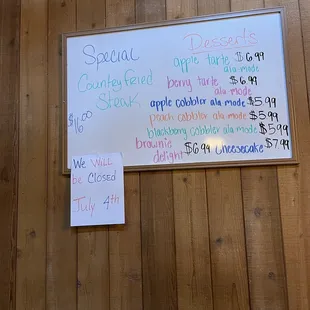 Special
Country fried
Steak
$16.00
Desserts
apple tarte $6.99
ala mode
berry tarte $6.99
ala mode
apple cobbler ala mode $5.99
peach cobbler ala mode $5.99
blackberry cobbler ala mode $5.99
brownie delight $6.99 Cheesecake $7.99
We Will
be Closed
July 4th